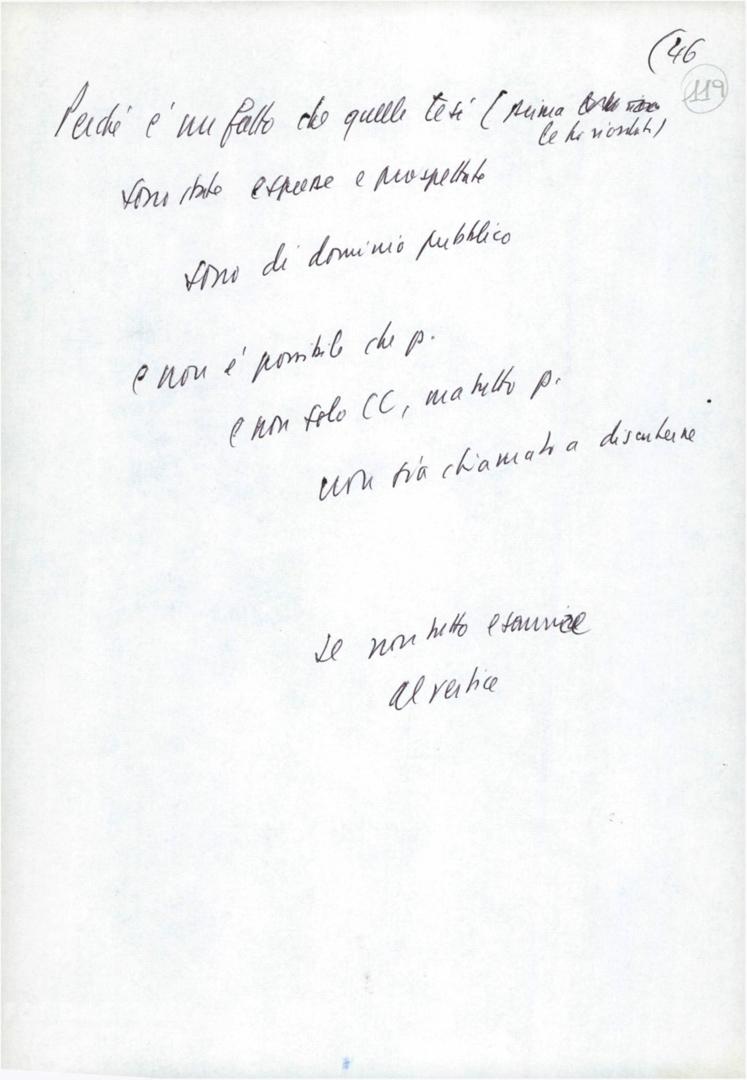 (46
119
Perché è un fatto che quelle tesi (prima
le ho ricordate)
sono state espresse e prospettate
sono di dominio pubblico
e non è possibile che p.
e non solo CC, ma tutto p.
non sia chiamato a discuterne
se non tutto esaurisce
al vertice